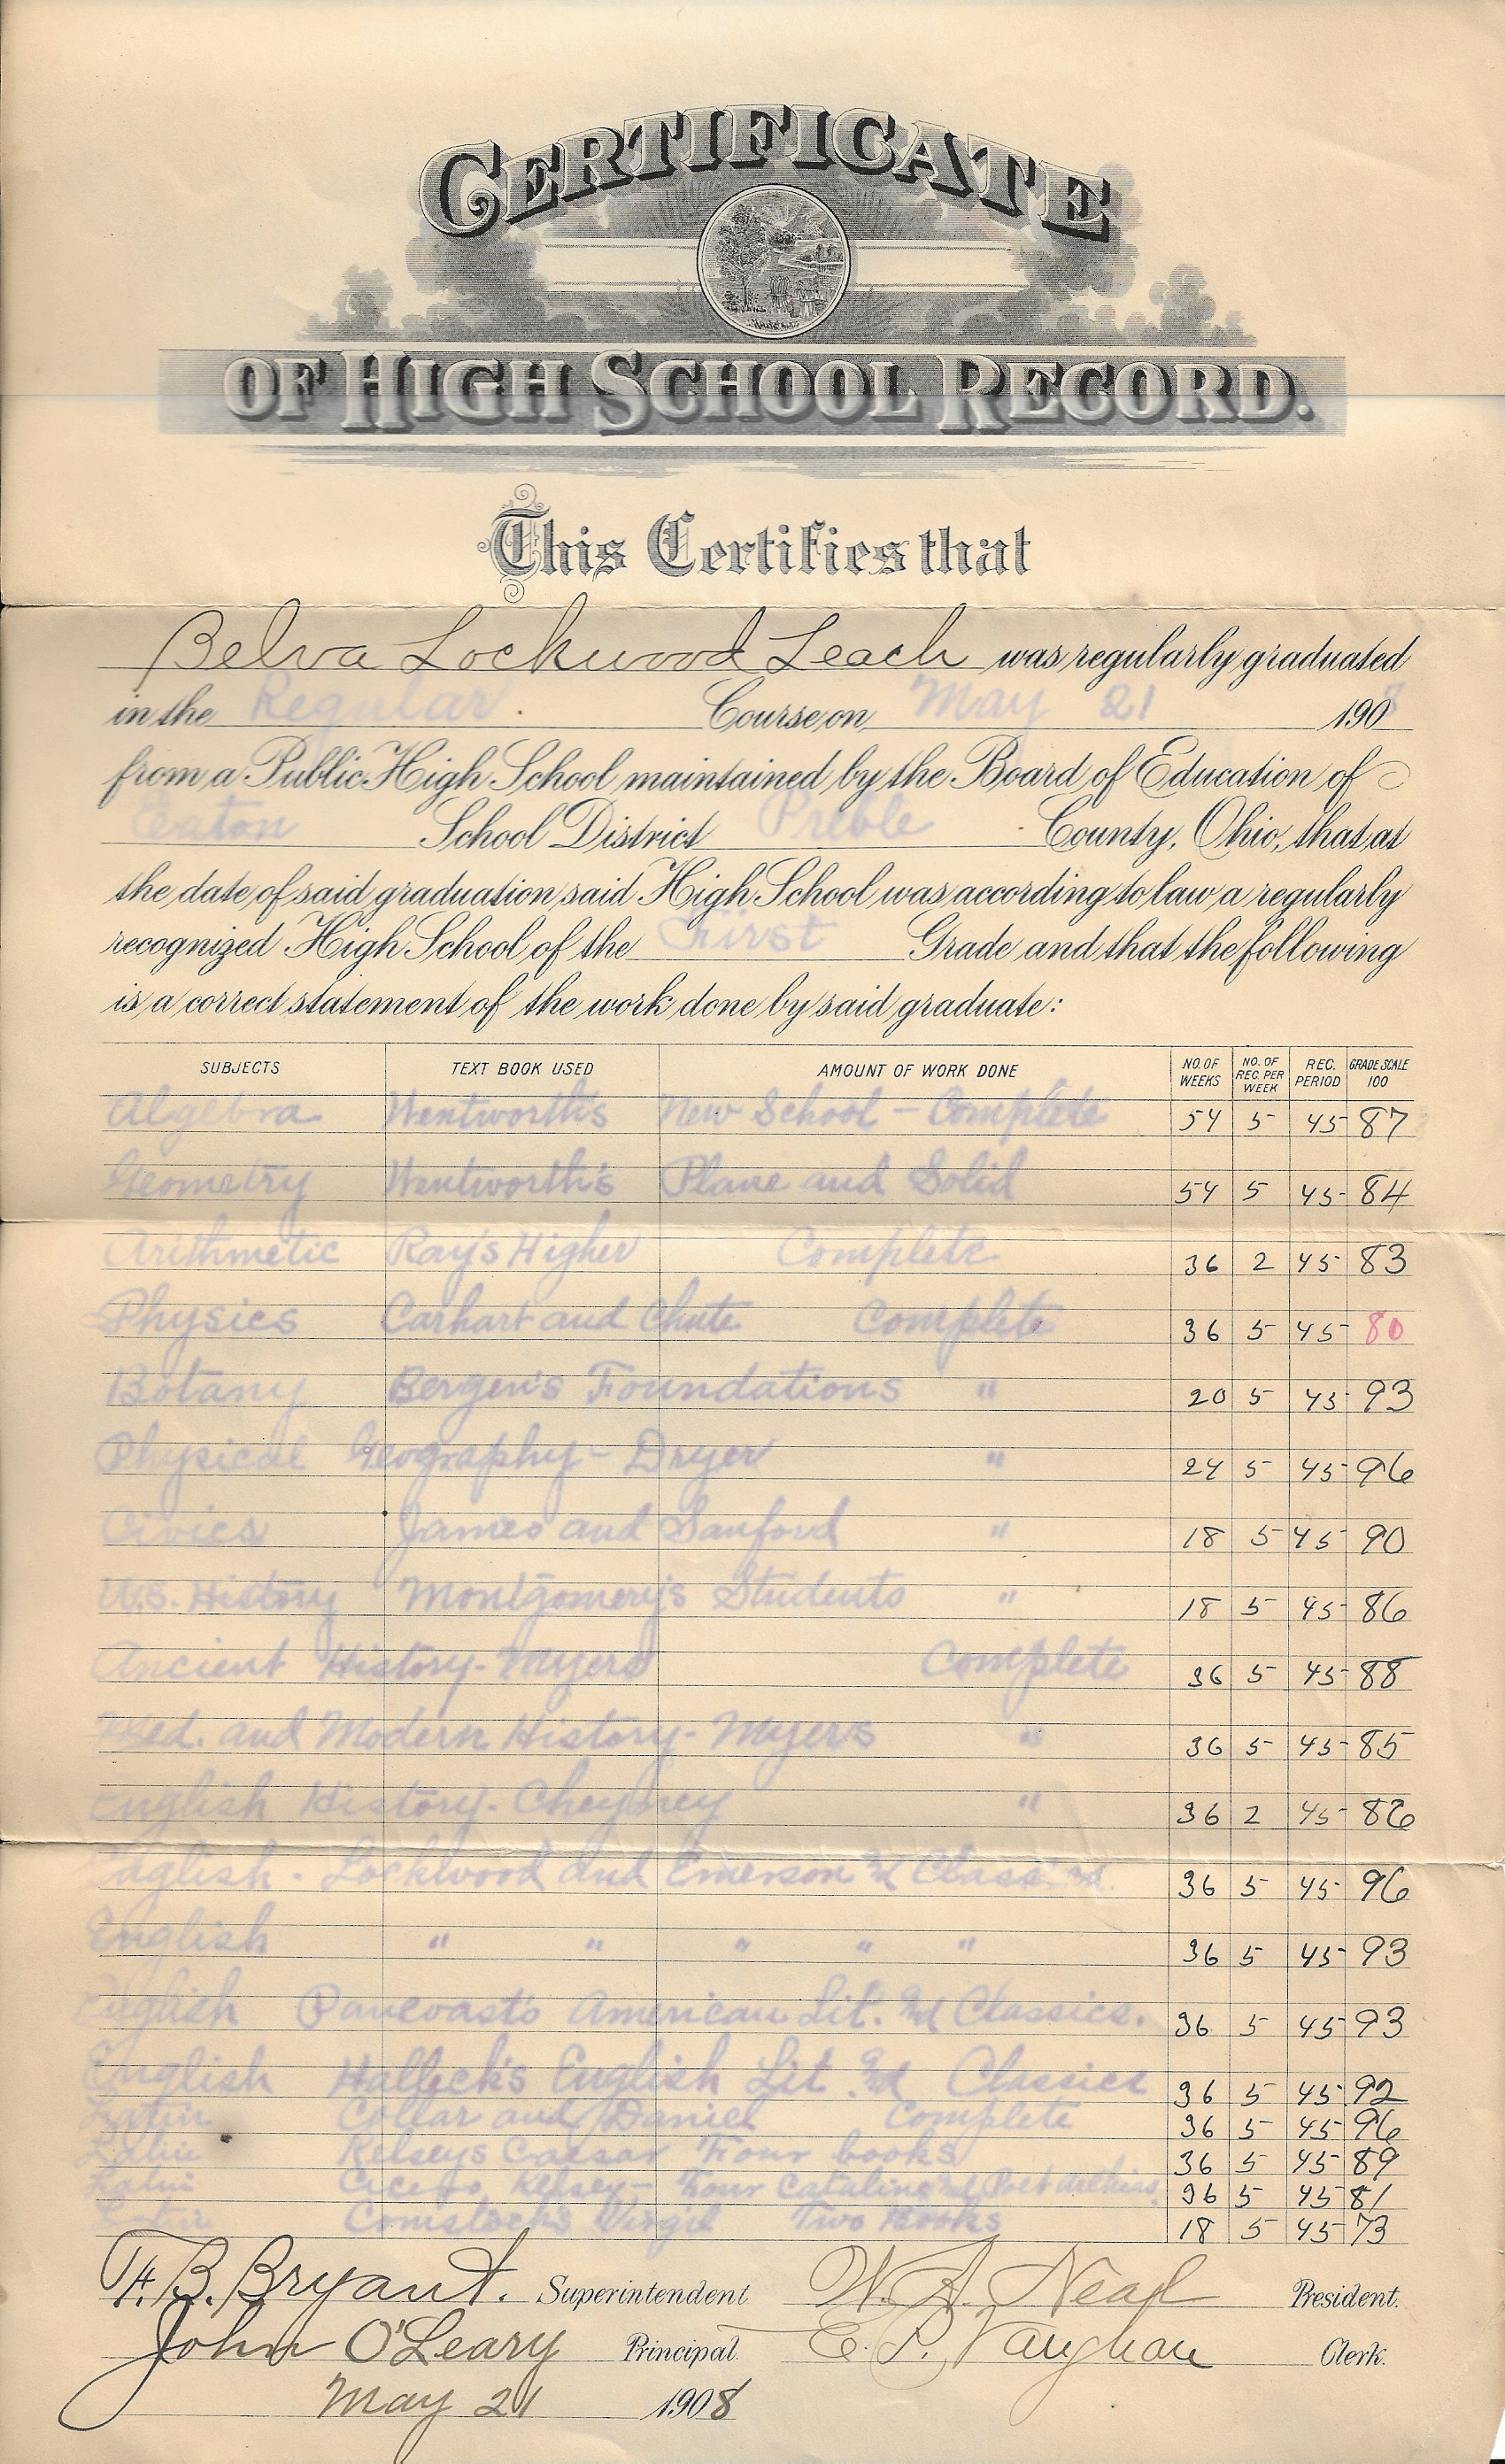 CERTIFICATE
OF HIGH SCHOOL RECORD.
This Certifies that
Belva Lockwood Leach was regularly graduated
in the Regular Course, on May 21 1908
from a Public High School maintained by the Board of Education of
Eaton School District Preble County, Ohio, that at
the date of said graduation said High School was according to law a regularly
recognized High School of the First Grade and that the following
is a correct statement of the work done by said graduate:
SUBJECTS TEXT BOOK USED AMOUNT OF WORK DONE NO. OF WEEKS NO. OF REC. PER WEEK REC. PERIOD GRADE SCALE 100
Algebra Wentworth's New School - Complete 54 5 45 87
Geometry Wentworth's Plane and Solid 54 5 45 84
Arithmetic Ray's Higher Complete 36 2 45 83
Physics Carhart and Chute Complete 36 5 45 80
Botany Bergen's Foundations " 20 5 45 93
Physical Geography - Dryer " 24 5 45 96
Civics James and Sanford " 18 5 45 90
U.S. History Montgomery's Students " 18 5 45 86
Ancient History - Myers Complete 36 5 45 88
Med. and Modern History - Myers " 36 5 45 85
English History - Cheyney " 36 2 45 86
English - Lockwood and Emerson and Classics. 36 5 45 96
English " " " " " 36 5 45 93
English Pancoast's American Lit. and Classics. 36 5 45 93
English Halleck's English Lit. and Classics 36 5 45 92
Latin Collar and Daniel Complete 36 5 45 96
Latin Kelsey's Caesar Four books 36 5 45 89
Latin Cicero, Kelsey - Four Cataline and Poet Archias. 36 5 45 81
Latin Comstock's Virgil Two Books 18 5 45 73
F. B. Bryant. Superintendent W. A. Neal President.
John O'Leary Principal. E. P. Vaughan Clerk.
May 21 1908